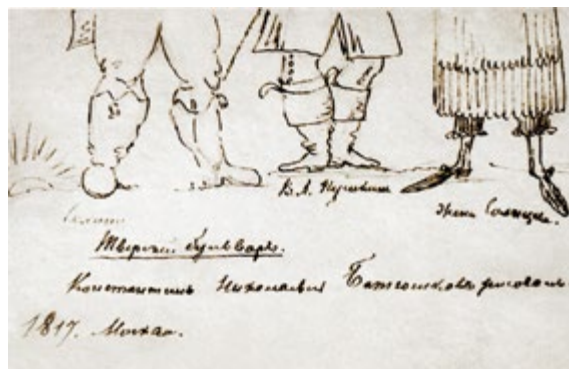 В. Л. Пушкин
Жена
Тверской бульваръ.
Константинъ Николаевич Батюшковъ рисовалъ.
1817. Москва.